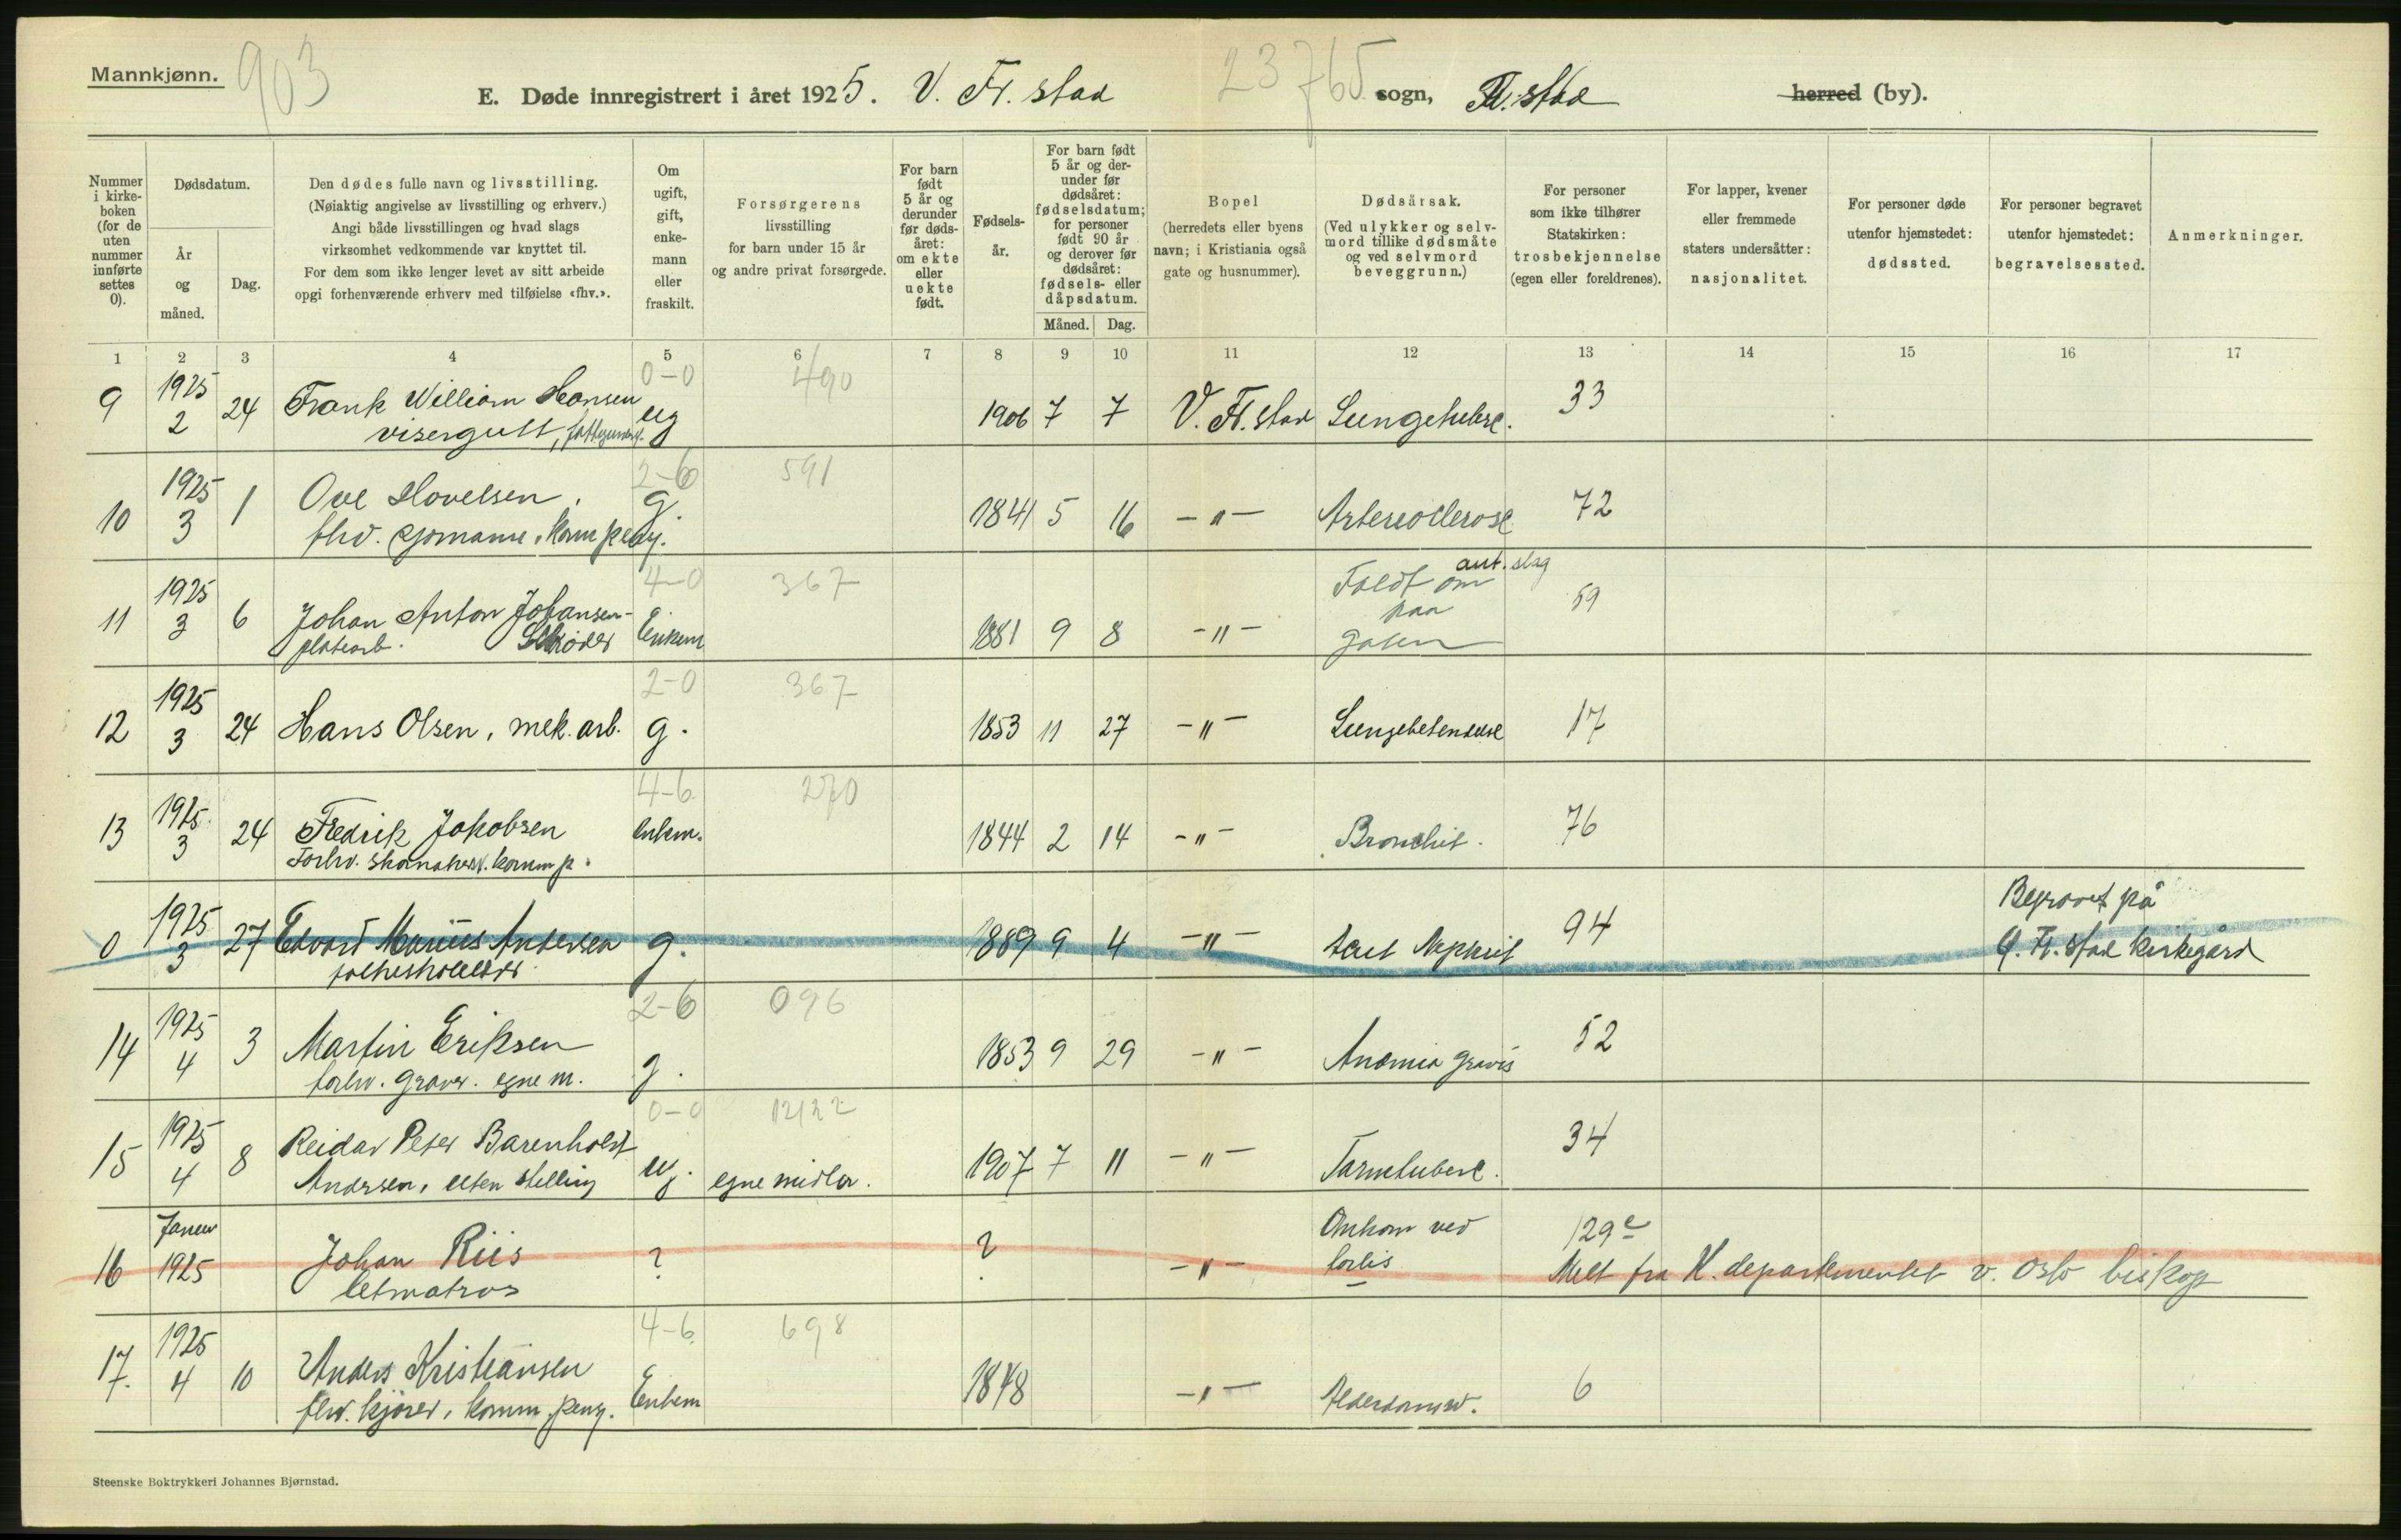 Mannkjønn.
903
E. Døde innregistrert i året 1925. V. Fr. stad
23765
sogn, Fr. stad herred (by).
Nummer i kirke-boken (for de uten nummer innførte settes 0).
Dødsdatum.
År og måned.
Dag.
Den dødes fulle navn og livsstilling.
(Nøiaktig angivelse av livsstilling og erhverv.)
Angi både livsstillingen og hvad slags
virksomhet vedkommende var knyttet til.
For dem som ikke lenger levet av sitt arbeide
opgi forhenværende erhverv med tilføielse «fhv.».
Om ugift, gift, enke-mann eller fraskilt.
Forsørgerens
livsstilling
for barn under 15 år
og andre privat forsørgede.
For barn født 5 år og derunder før døds-året: om ekte eller uekte født.
Fødsels-år.
For barn født 5 år og der-under før dødsåret: fødselsdatum; for personer født 90 år og derover før dødsåret: fødsels- eller dåpsdatum.
Måned. Dag.
Bopel
(herredets eller byens
navn; i Kristiania også
gate og husnummer).
Dødsårsak.
(Ved ulykker og selv-
mord tillike dødsmåte
og ved selvmord
beveggrunn.)
For personer
som ikke tilhører
Statskirken:
trosbekjennelse
(egen eller foreldrenes).
For lapper, kvener
eller fremmede
staters undersåtter:
nasjonalitet.
For personer døde
utenfor hjemstedet:
dødssted.
For personer begravet
utenfor hjemstedet:
begravelsessted.
Anmerkninger.
1 2 3 4 5 6 7 8 9 10 11 12 13 14 15 16 17
0-0 490
9 1925 2 24 Frank William Hansen ug 1906 7 7 V. Fr. stad Lungetuberc. 33
visergutt,
2-6 591
10 1925 3 1 Ove Hovelsen, g. 1841 5 16 -"- 72
fhv.
4-0 367
11 1925 3 6 Johan Anton Johansen- Enkem 1881 9 8 -"- Faldt om ant. slag 59
platearb. Schrøder
paa
gaten
2-0 367
12 1925 3 24 Hans Olsen, mek. arb. g. 1853 11 27 -"- Lungebetendelse 17
4-6. 270
13 1925 3 24 Fredrik Jakobsen Enkem. 1844 2 14 -"- Bronchit. 76
Forhv. komm p.
0 1925 3 27 Edvard Marius Andersen g. 1889 9 4 -"- Acut Nephrit 94 Begravet på
Ø. Fr. stad kirkegård
2-6 096
14 1925 4 3 Martin Eriksen g. 1853 9 29 -"- Anæmia gravis 52
forhv. graver. egne m.
0-0 12122
15 1925 4 8 Reidar Peter Barenholdt ug. egne midler. 1907 7 11 -"- Tarmtuberc. 34
Andersen, uten stilling
16 Januar 1925 Johan Riis ? ? -"- Omkom ved 129
letmatros
forlis
Melt fra K. departementet v. Oslo biskop
4-6. 698
17. 1925 4 10 Anders Kristiansen Enkem 1848 -"- Alderdomsv. 6
fhv. kjører, komm. peng.
Steenske Boktrykkeri Johannes Bjørnstad.